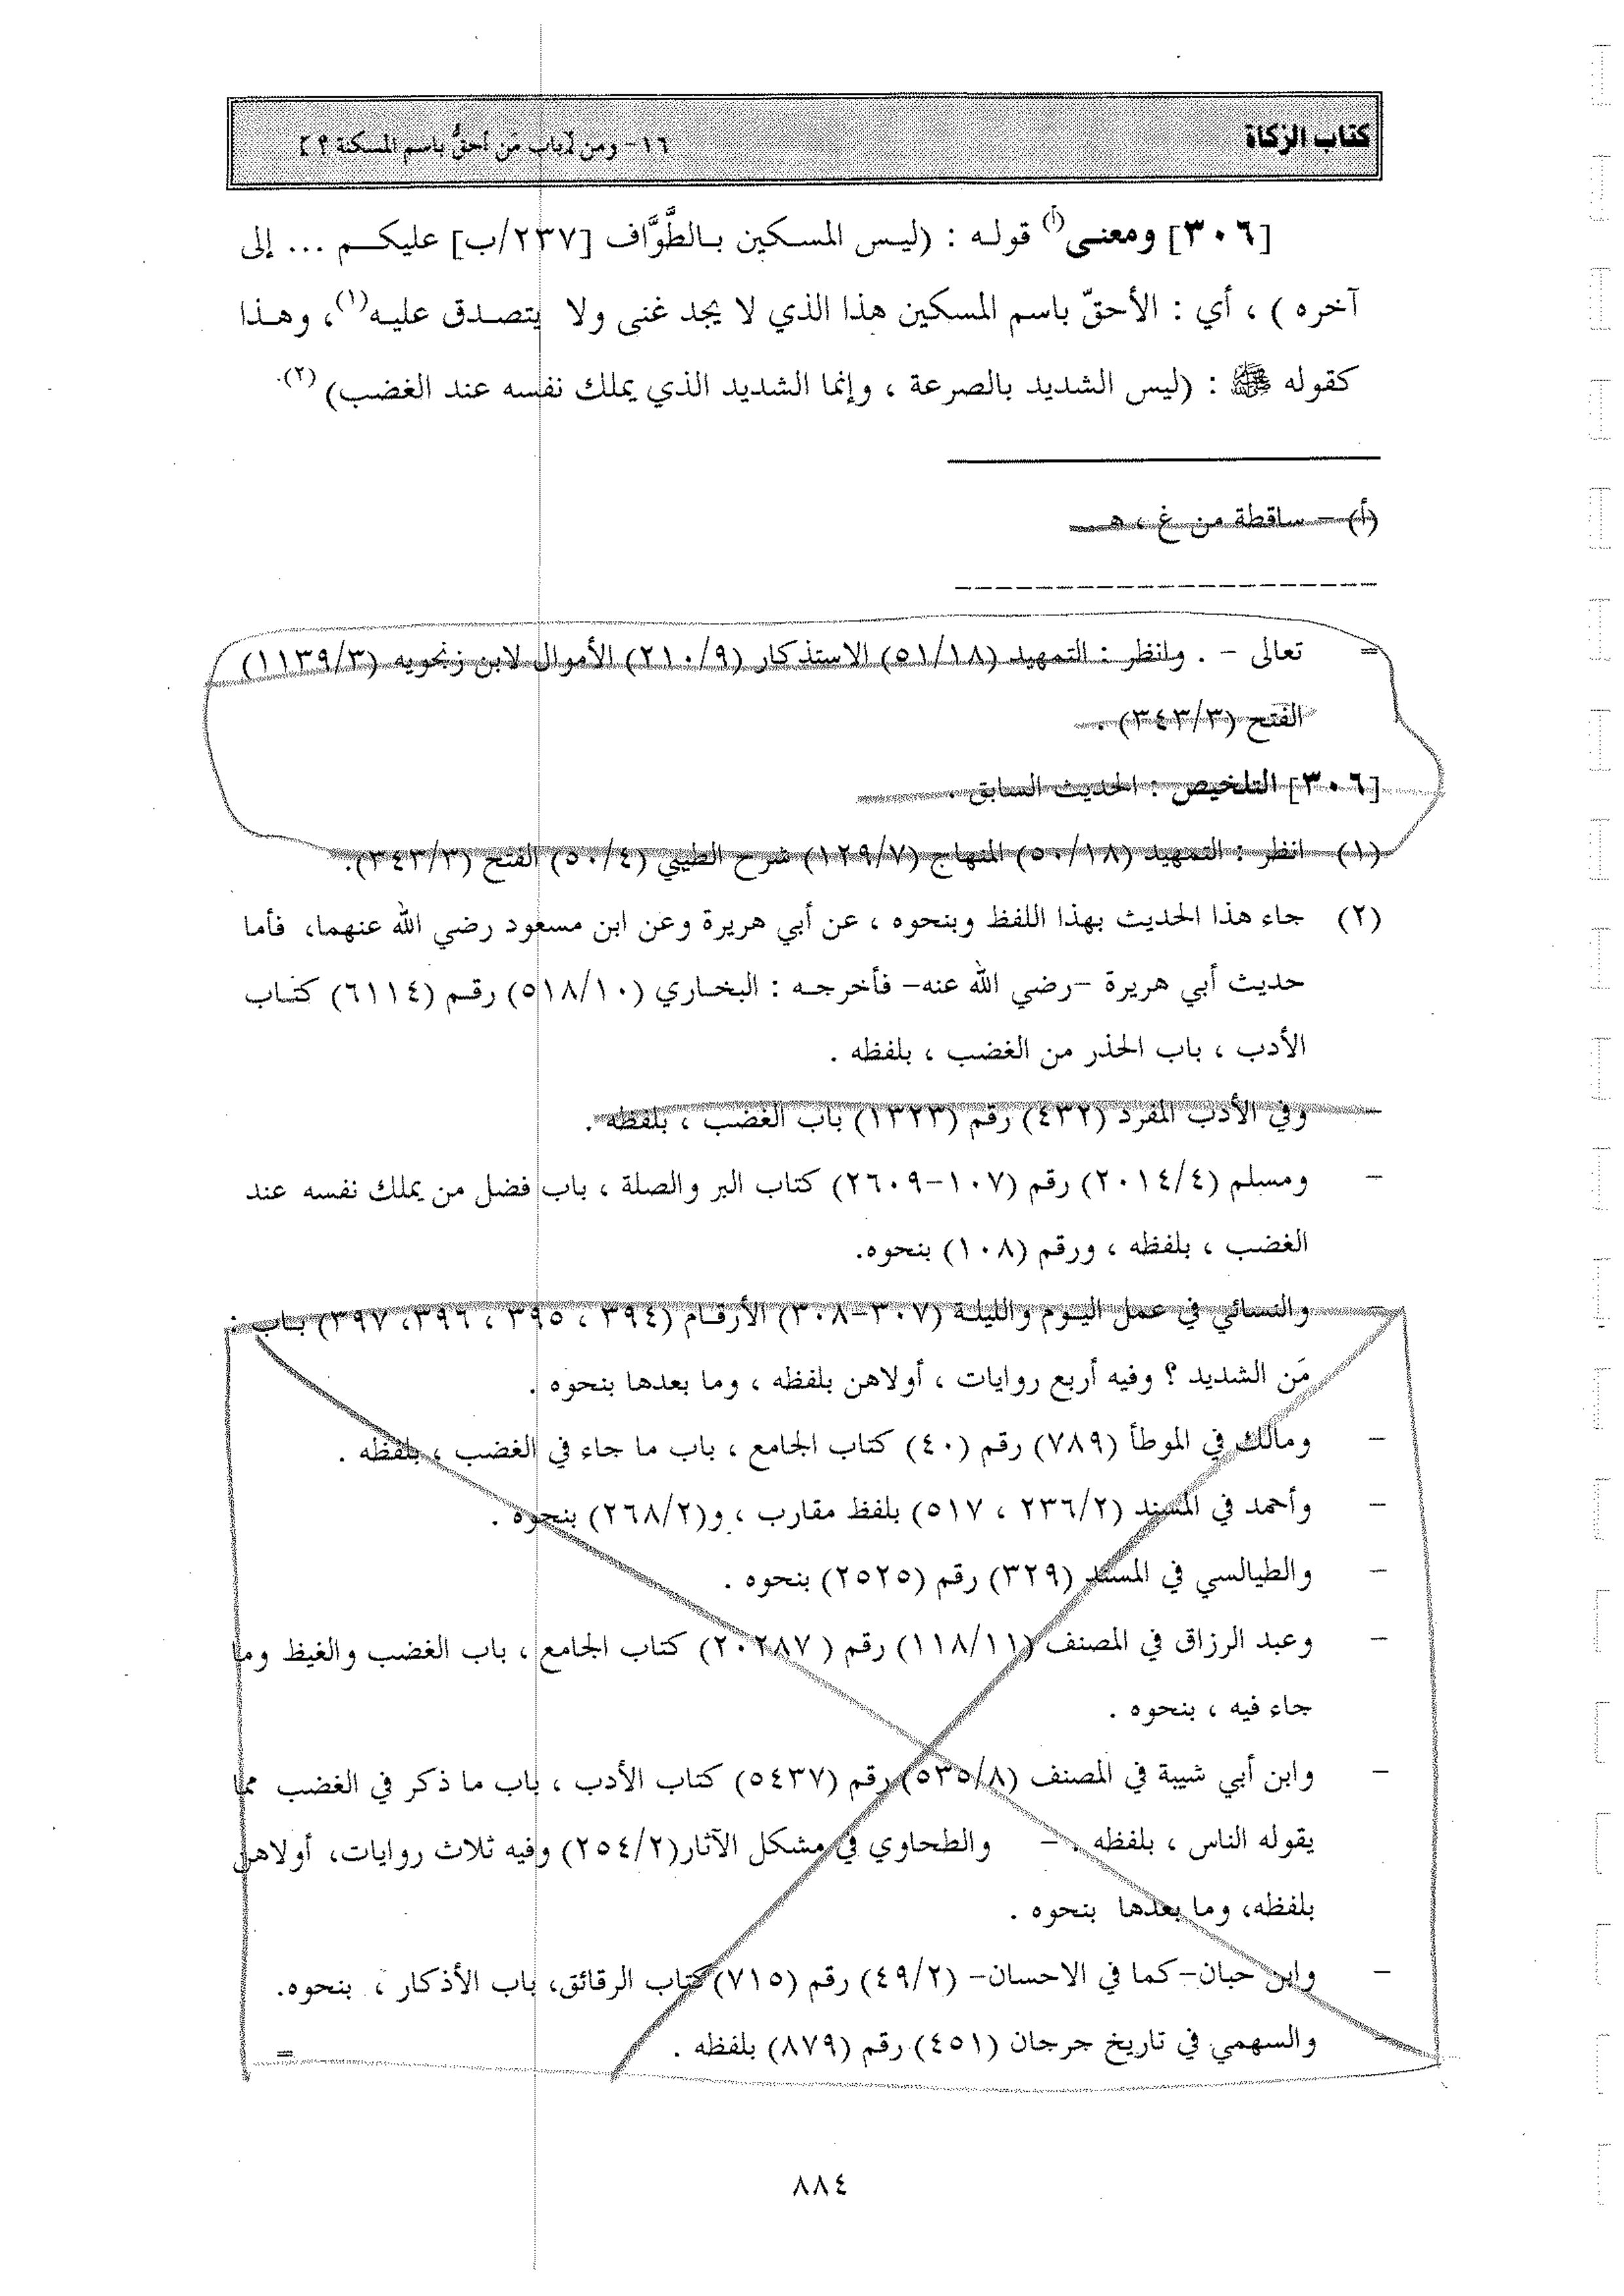 كتاب الزكاة
١٦- ومن [باب مَن أحقُّ باسم المسكنة ؟]
[٣٠٦] ومعنى(أ) قوله : (ليس المسكين بالطَّوَّاف [٢٣٧/ب] عليكم ... إلى
آخره ) ، أي : الأحقّ باسم المسكين هذا الذي لا يجد غنى ولا يتصدق عليه(١)، وهذا
كقوله ﷺ : (ليس الشديد بالصرعة ، وإنما الشديد الذي يملك نفسه عند الغضب) (٢).
(أ) - ساقطة من غ ، هـ
= تعالى - . وانظر : التمهيد (٥١/١٨) الاستذكار (٢١٠/٩) الأموال لابن زنجويه (١١٣٩/٣)
الفتح (٣٤٣/٣) .
[٣٠٦] التلخيص : الحديث السابق .
(١) انظر : التمهيد (٥٠/١٨) المنهاج (١٢٩/٧) شرح الطيبي (٥٠/٤) الفتح (٣٤٣/٣).
(٢) جاء هذا الحديث بهذا اللفظ وبنحوه ، عن أبي هريرة وعن ابن مسعود رضي الله عنهما، فأما
حديث أبي هريرة -رضي الله عنه- فأخرجه : البخاري (٥١٨/١٠) رقم (٦١١٤) كتاب
الأدب ، باب الحذر من الغضب ، بلفظه .
- وفي الأدب المفرد (٤٣٢) رقم (١٣٢٣) باب الغضب ، بلفظه .
- ومسلم (٢٠١٤/٤) رقم (١٠٧-٢٦٠٩) كتاب البر والصلة ، باب فضل من يملك نفسه عند
الغضب ، بلفظه ، ورقم (١٠٨) بنحوه.
- والنسائي في عمل اليوم والليلة (٣٠٧-٣٠٨) الأرقام (٣٩٤ ، ٣٩٥ ، ٣٩٦، ٣٩٧) باب :
مَن الشديد ؟ وفيه أربع روايات ، أولاهن بلفظه ، وما بعدها بنحوه .
- ومالك في الموطأ (٧٨٩) رقم (٤٠) كتاب الجامع ، باب ما جاء في الغضب ، بلفظه .
- وأحمد في المسند (٢٣٦/٢ ، ٥١٧) بلفظ مقارب ، و(٢٦٨/٢) بنحوه .
- والطيالسي في المسند (٣٢٩) رقم (٢٥٢٥) بنحوه .
- وعبد الرزاق في المصنف (١١٨/١١) رقم ( ٢٠٢٨٧) كتاب الجامع ، باب الغضب والغيظ وما
جاء فيه ، بنحوه .
- وابن أبي شيبة في المصنف (٥٣٥/٨) رقم (٥٤٣٧) كتاب الأدب ، باب ما ذكر في الغضب مما
يقوله الناس ، بلفظه . - والطحاوي في مشكل الآثار(٢٥٤/٢) وفيه ثلاث روايات، أولاهن
بلفظه، وما بعدها بنحوه .
- وابن حبان-كما في الاحسان- (٤٩/٢) رقم (٧١٥) كتاب الرقائق، باب الأذكار ، بنحوه.
- والسهمي في تاريخ جرجان (٤٥١) رقم (٨٧٩) بلفظه . =
٨٨٤